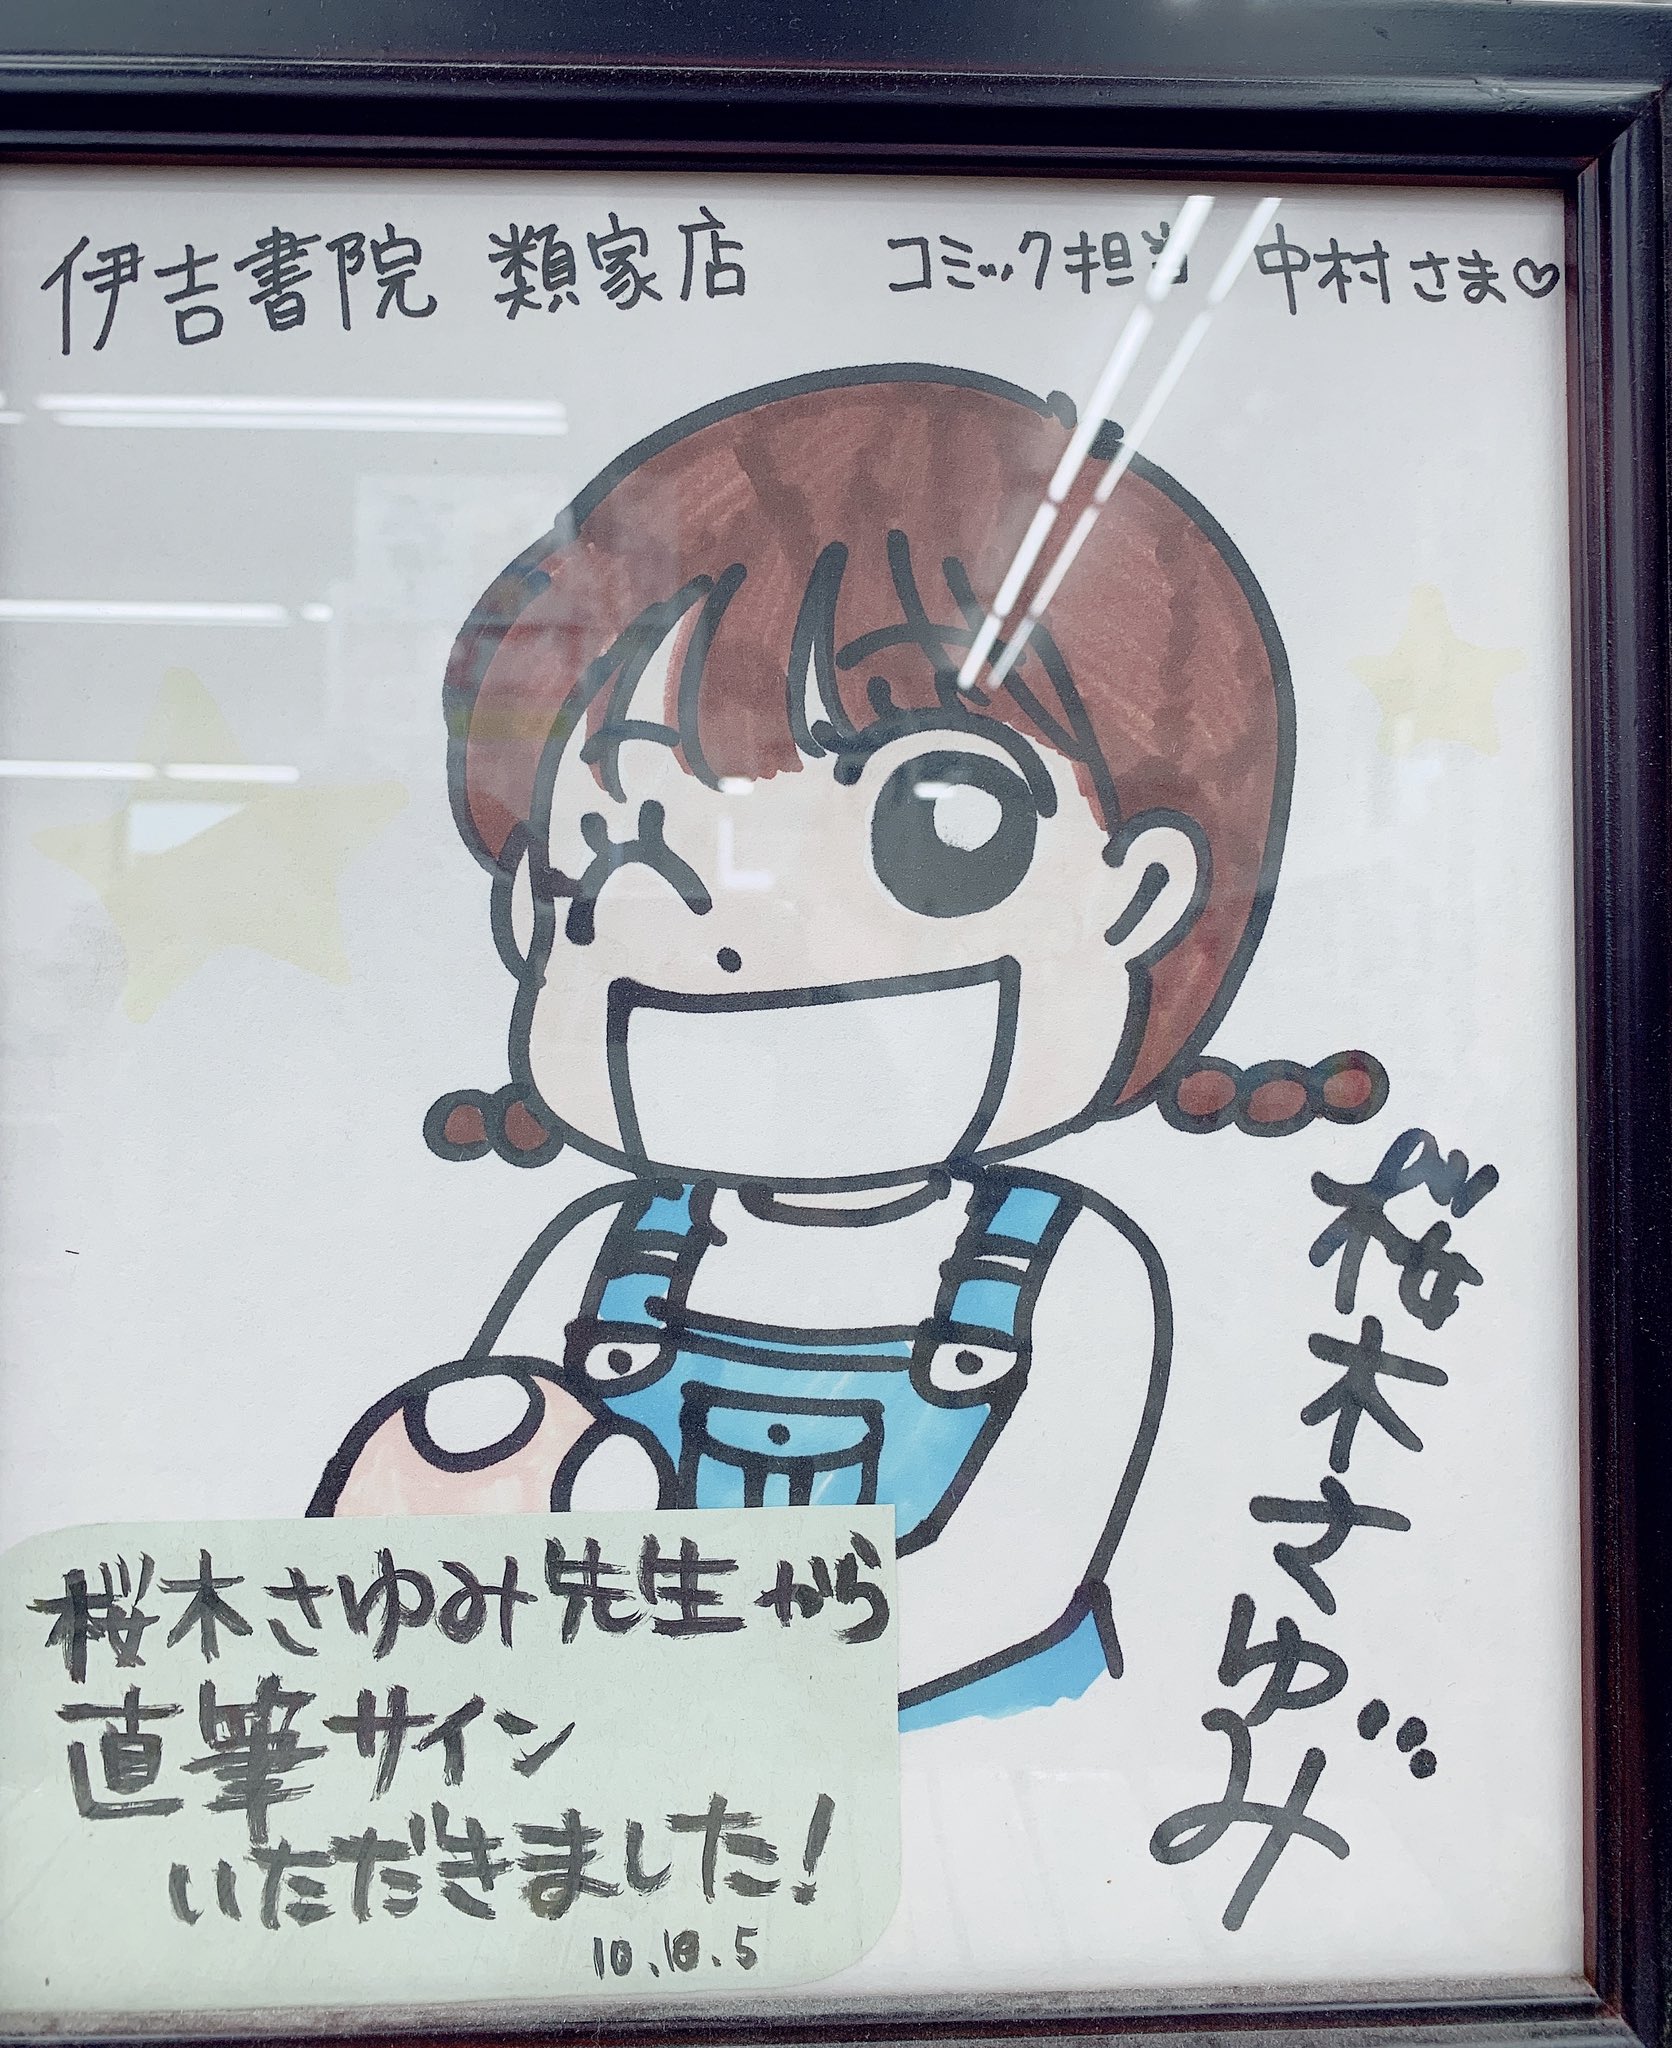 伊吉書院 類家店 コミック担当 中村さま♡
桜木さゆみ
桜木さゆみ先生から
直筆サイン
いただきました!
10.10.5